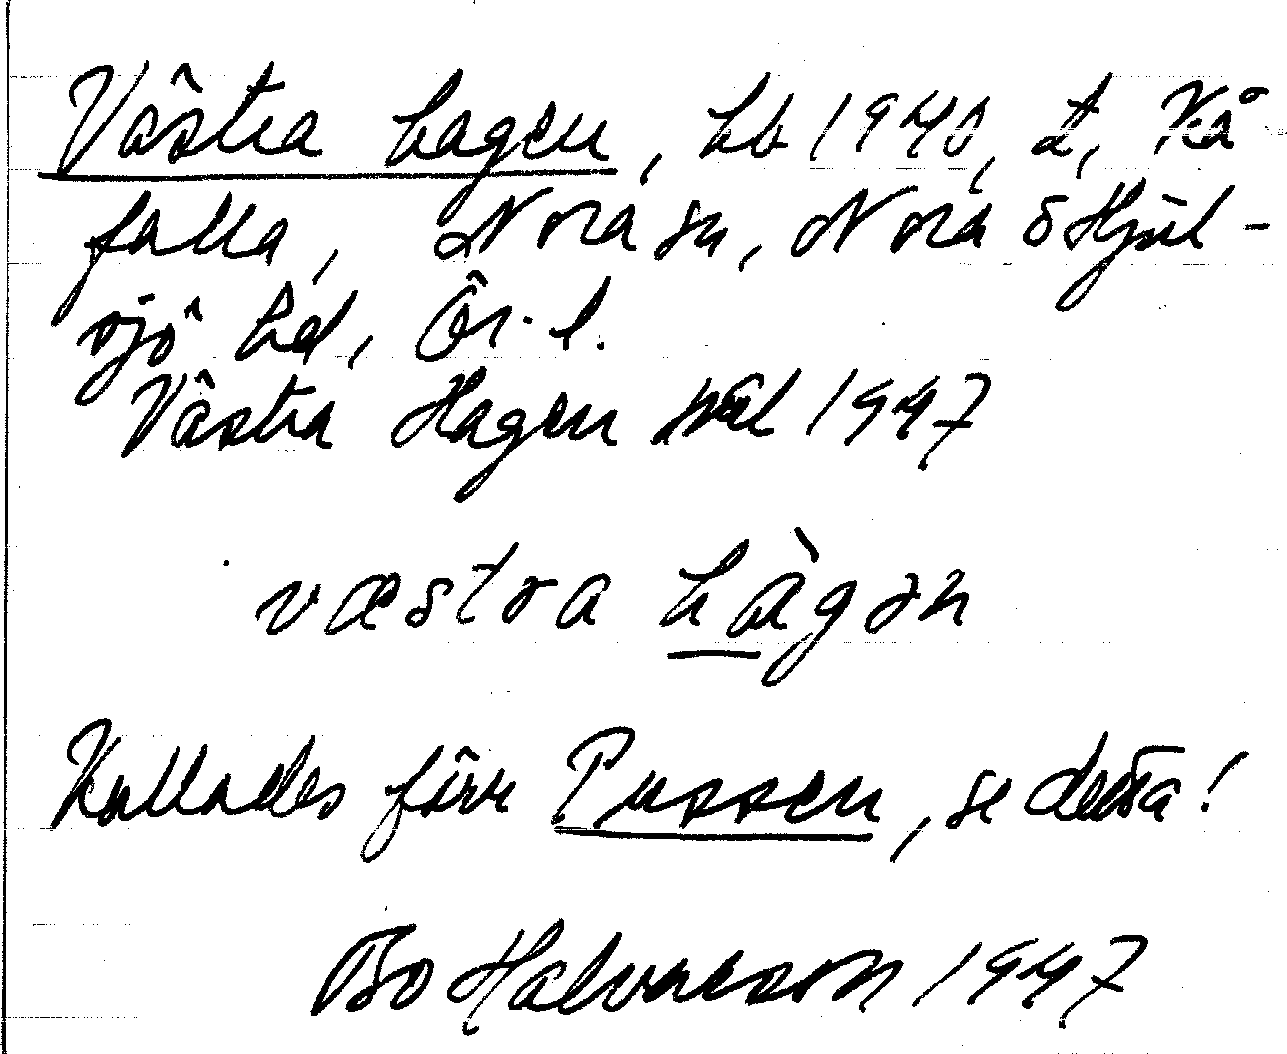 Västra hagen, hb 1940, t, Kå-
falla, Nora sn, Nora o Hjul-
sjö hd, Ör. l.
Västra Hagen 1947
væstra hàgən
Kallades förr Pussen, se detta!
Bo Halvarsson 1947